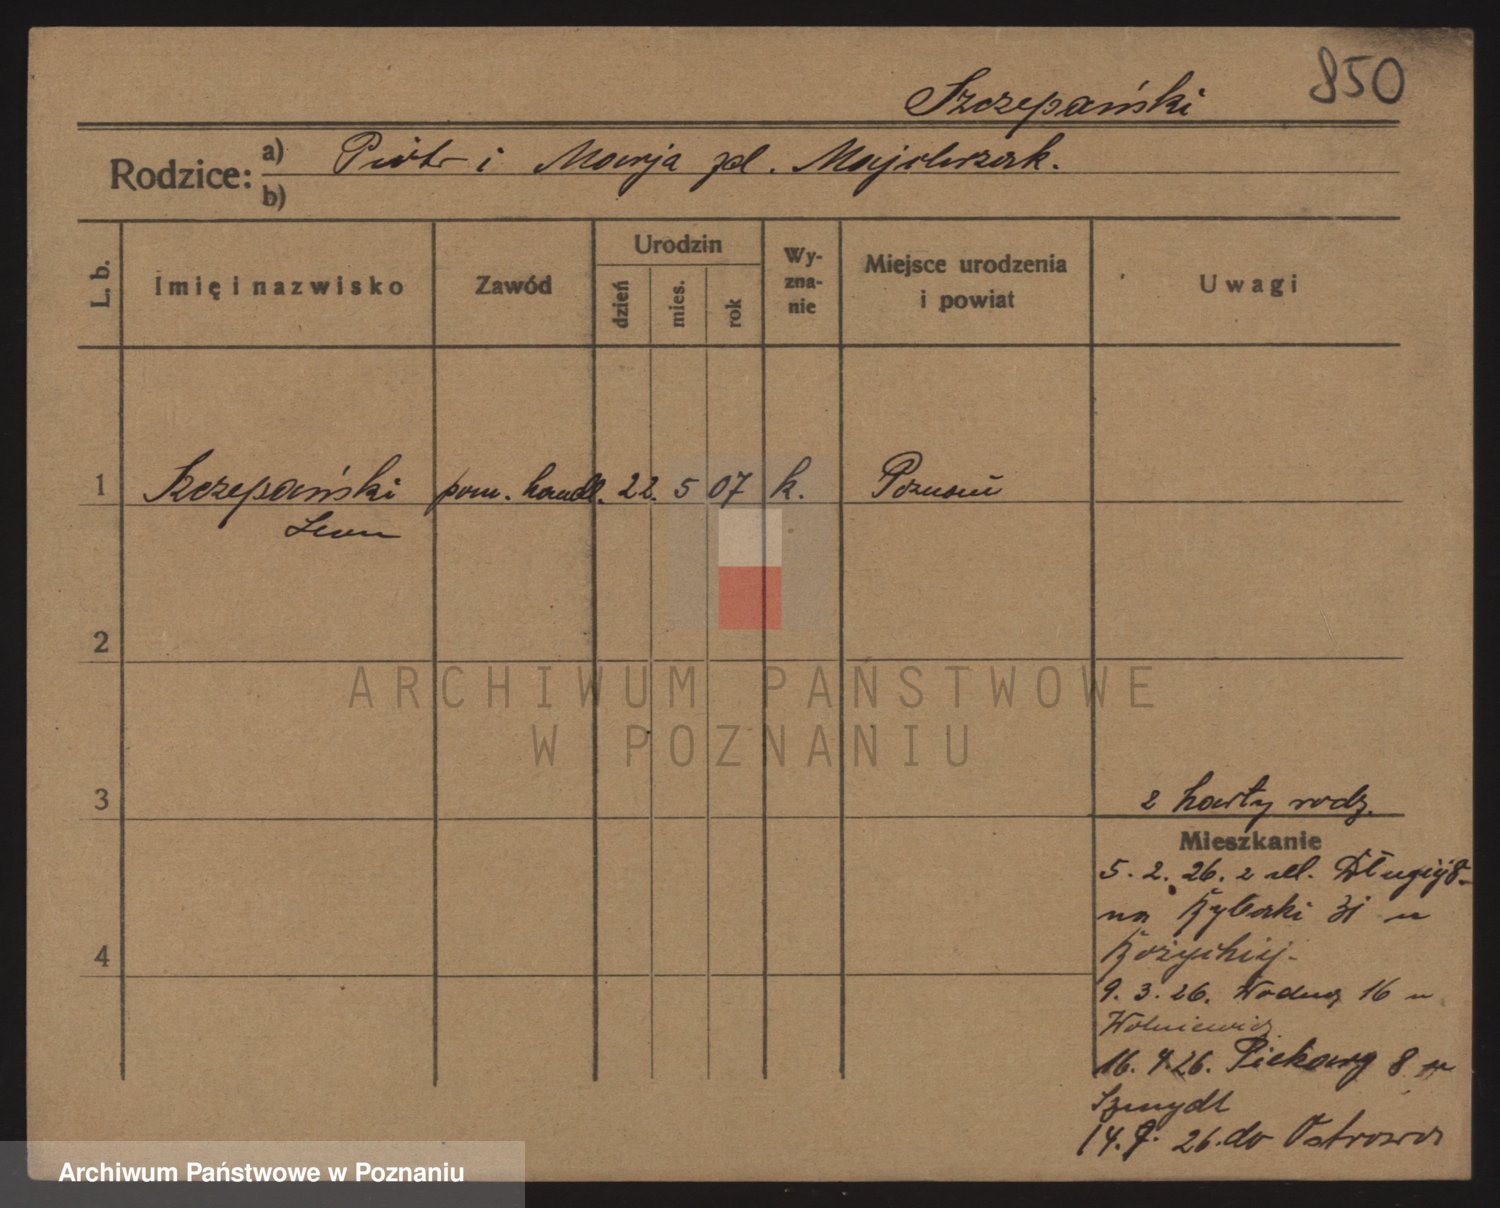 850
Szczepański
Rodzice: a) Piotr i Marja zd. Majchrzak.
b)
L. b. Imię i nazwisko Zawód Urodzin dzień mies. rok Wyznanie Miejsce urodzenia i powiat Uwagi
1 Szczepański pom. handl. 22. 5 07 k. Poznań
Leon
2
ARCHIWUM PAŃSTWOWE
W POZNANIU
3 z karty rodz.
Mieszkanie
5. 2. 26. z ul. Długiej 8
na Rybaki 31 u
4
9. 3. 26. Wodna 16 u
Wolniewicz
16. 4. 26. Piekary 8 u
Szmydt
14. 9. 26. do Ostrowa
Archiwum Państwowe w Poznaniu